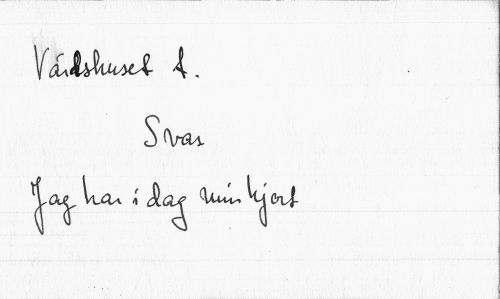 Värdshuset t.
Svar
Jag har i dag min hjort